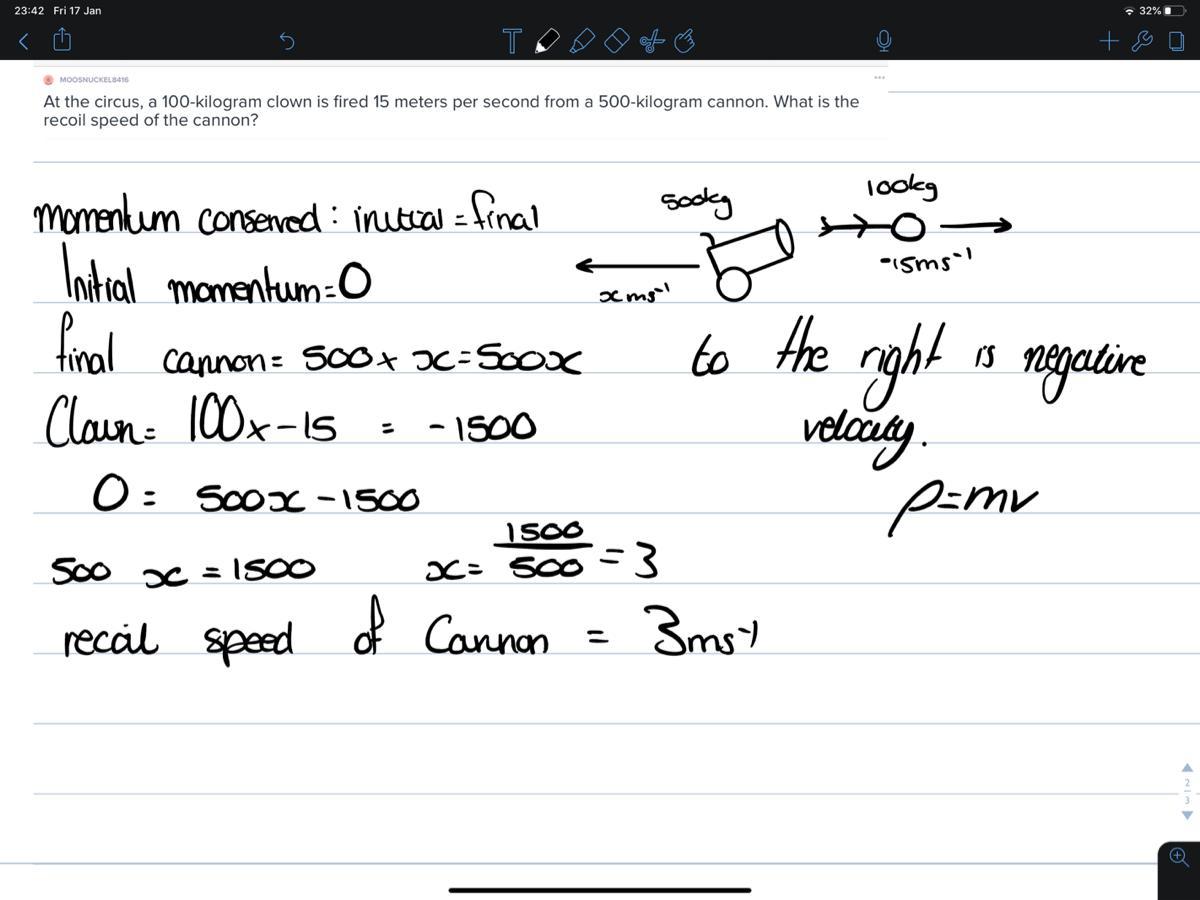 23:42 Fri 17 Jan
32%
T
MOOSNUCKEL8416
At the circus, a 100-kilogram clown is fired 15 meters per second from a 500-kilogram cannon. What is the
recoil speed of the cannon?
momentum conserved : initial = final
500kg
100kg
-15ms⁻¹
x ms⁻¹
Initial momentum = 0
final cannon = 500 × x = 500x
to the right is negative
velocity.
Clown = 100 x -15 = -1500
0 = 500x - 1500
p=mv
500 x = 1500
x = 1500/500 = 3
recoil speed of Cannon = 3ms⁻¹
2
3